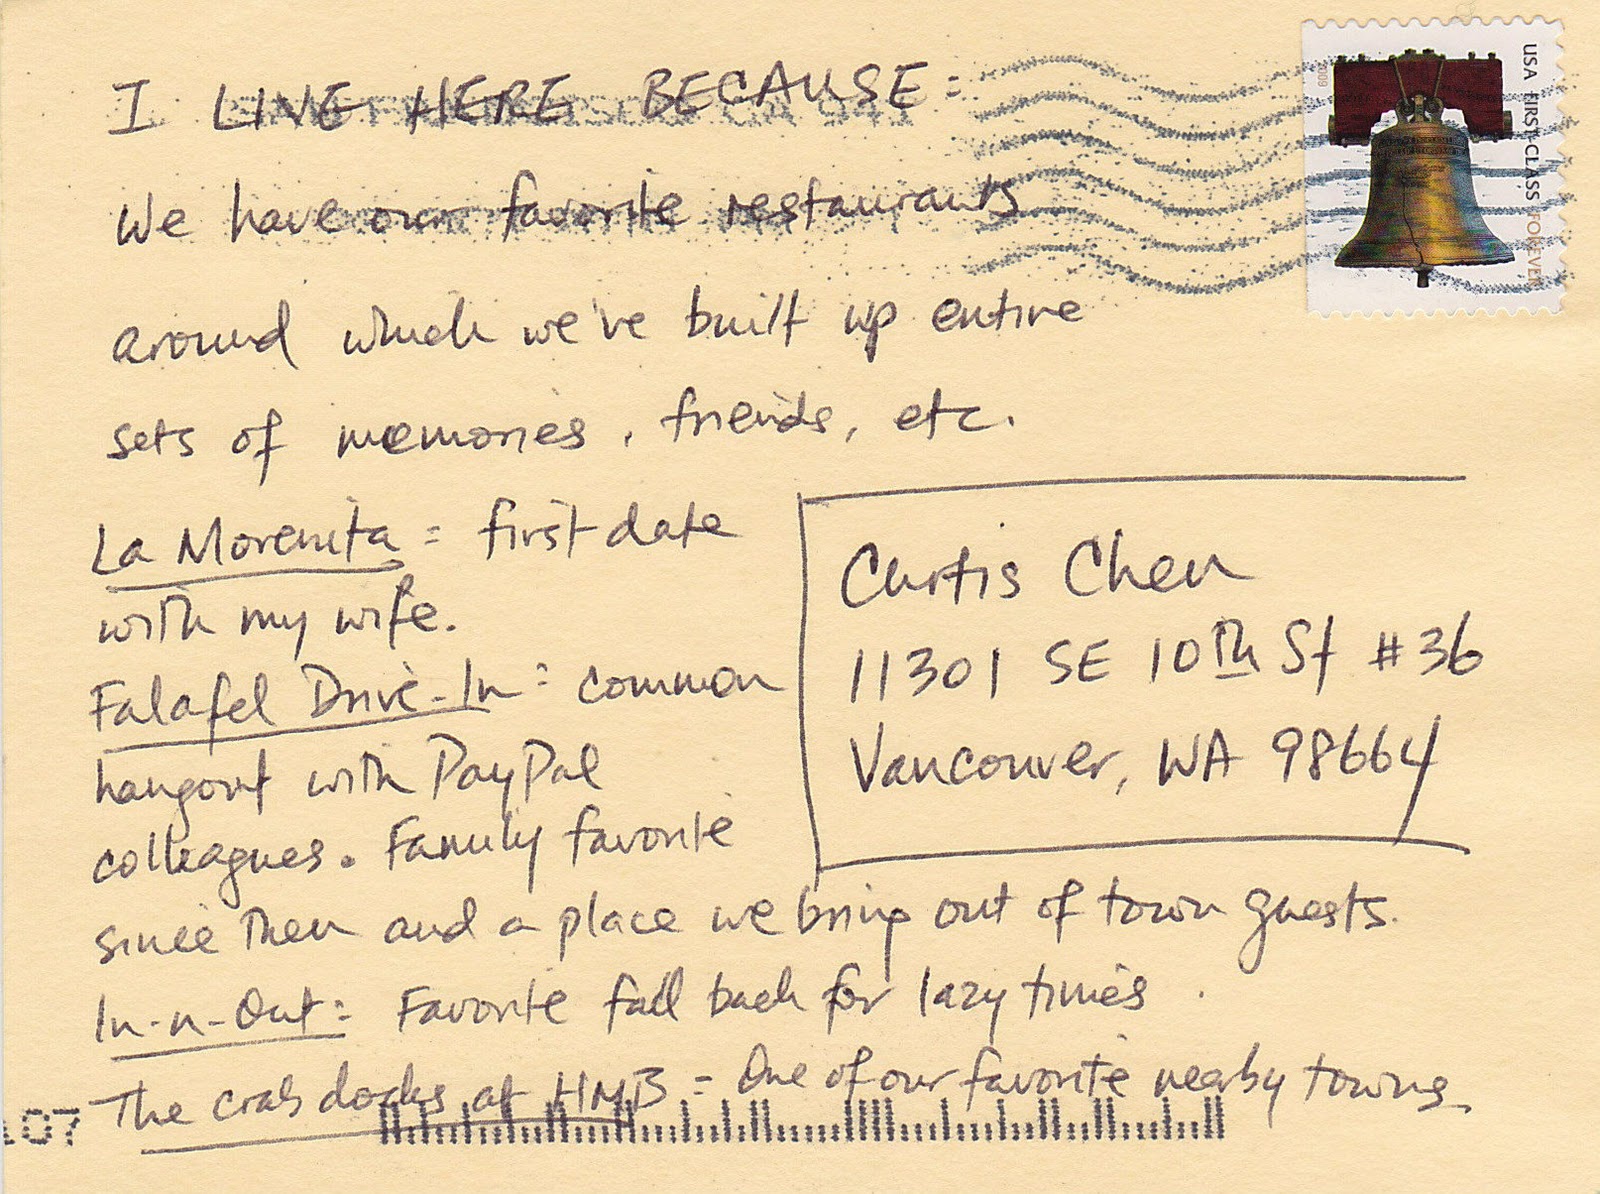 I LIVE HERE BECAUSE:
We have our favorite restaurants
around which we've built up entire
sets of memories, friends, etc.
La Morenita = first date
with my wife.
Falafel Drive-In: common
hangout with PayPal
colleagues. Family favorite
since then and a place we bring out of town guests.
In-n-Out: Favorite fall back for lazy times.
The crab docks at HMB = One of our favorite nearby towns
Curtis Chen
11301 SE 10th St #36
Vancouver, WA 98664
USA FIRST-CLASS FOREVER
2009
107